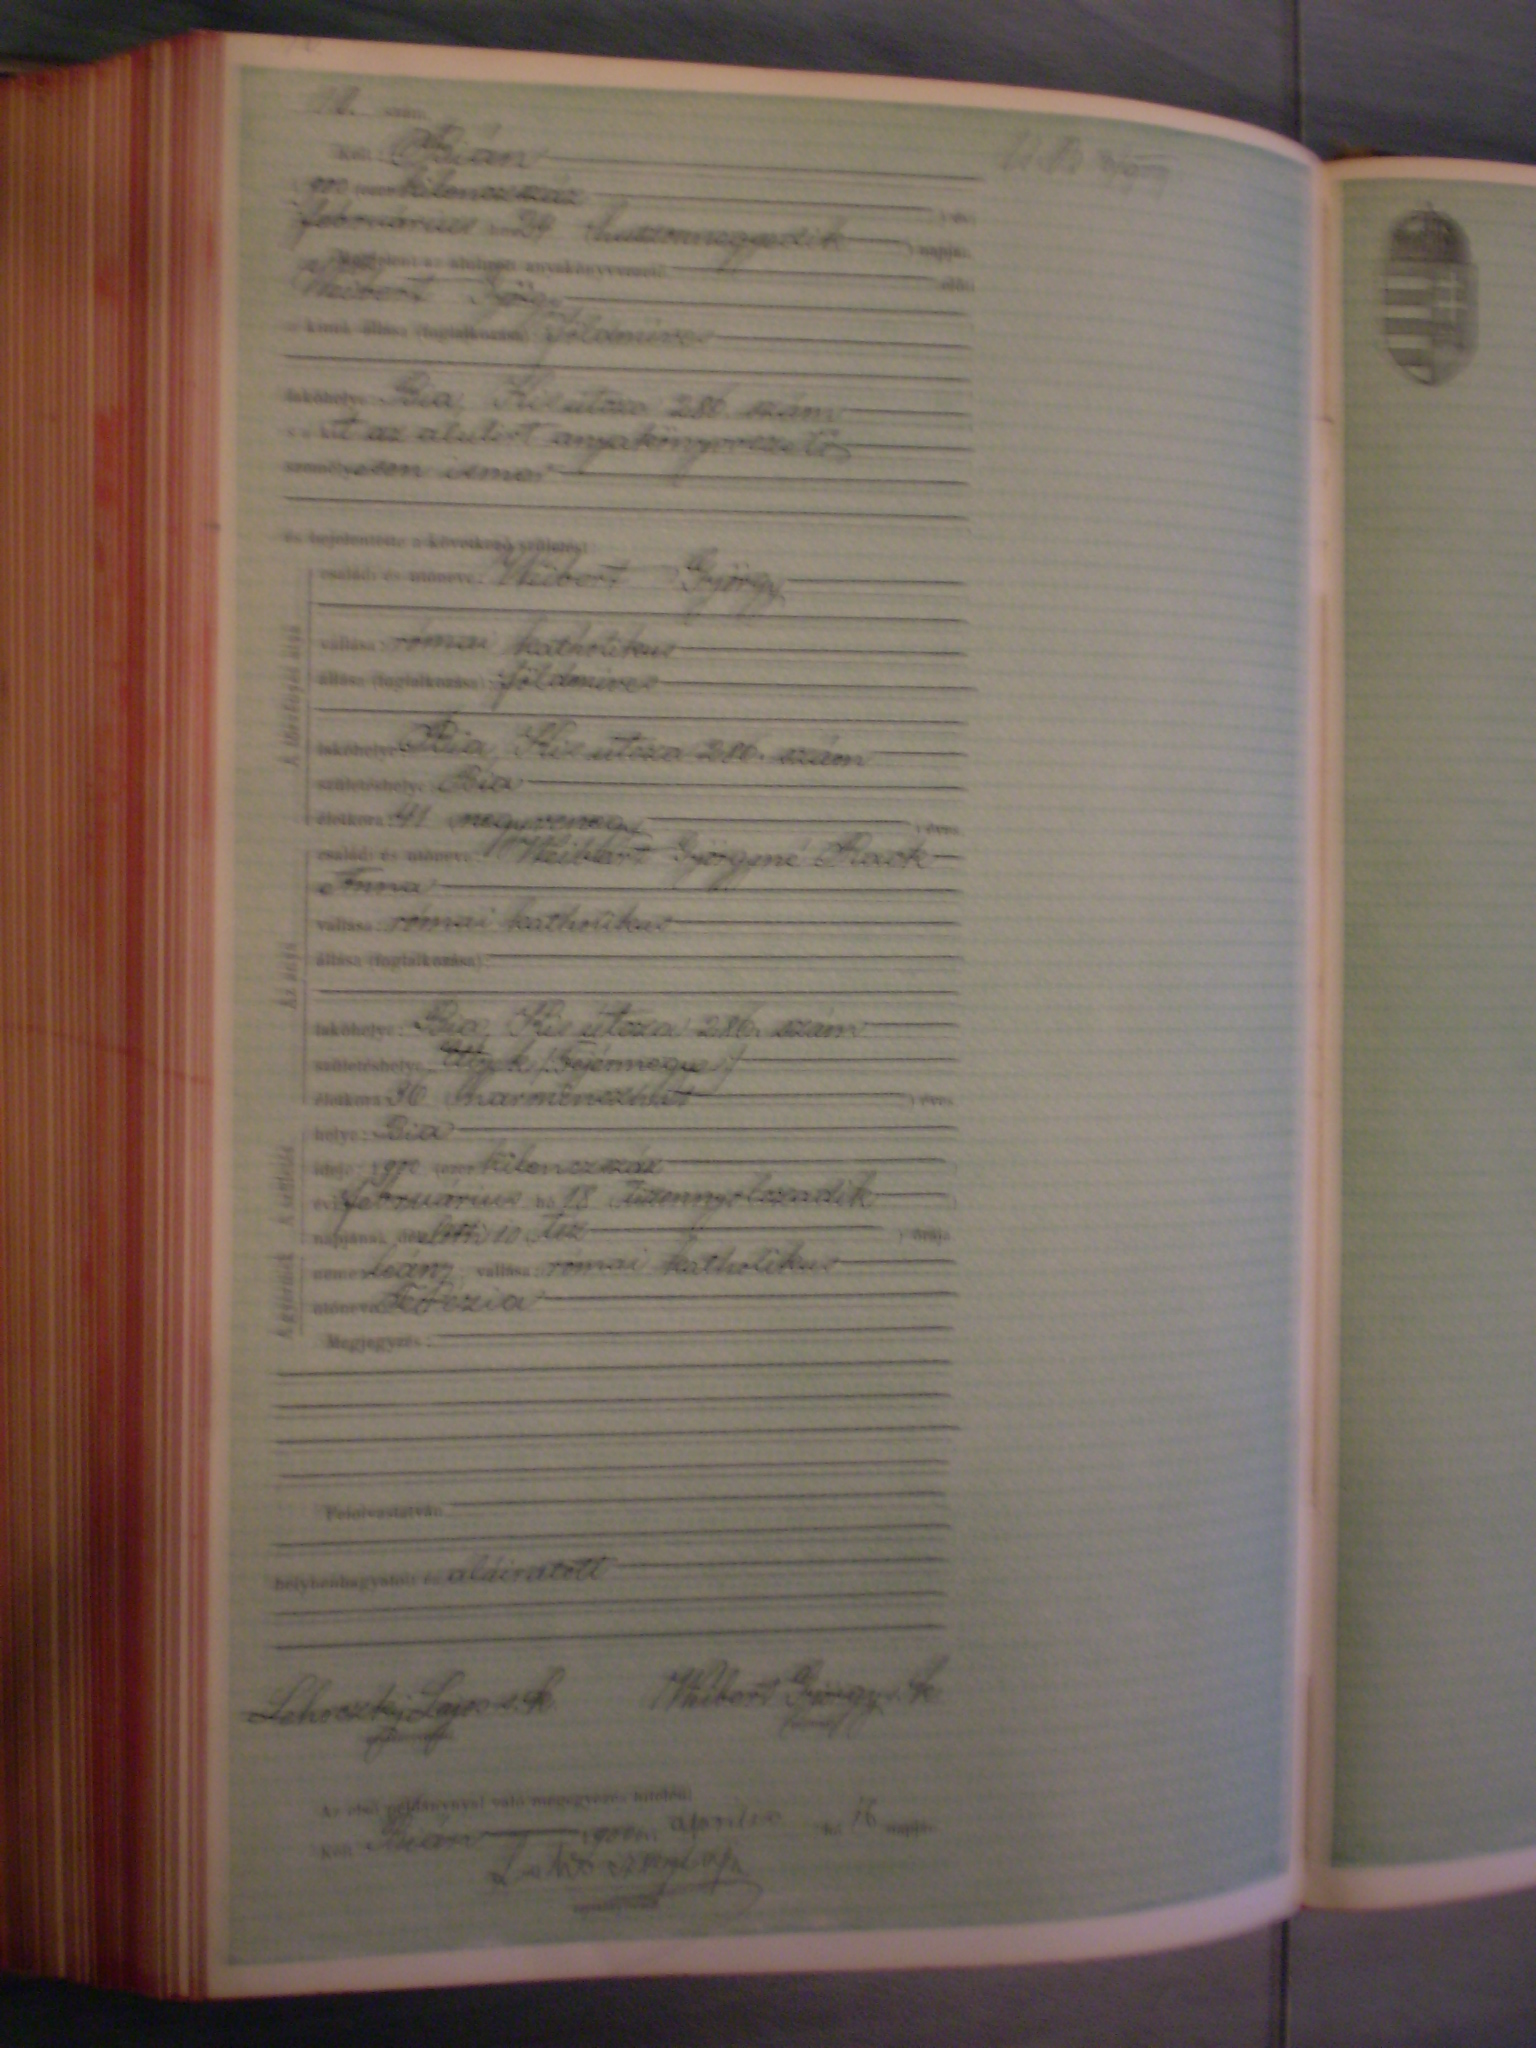 szám
Kelt Bián
1900 (ezer kilenczszáz ) évi
februárius hó 24 (huszonnegyedik ) napján
Megjelent az alulirott anyakönyvvezető előtt
Weibert György
a kinek állása (foglalkozása) földmíves
lakóhelye Bia, Kis útcza 286. szám
és kit az alulirt anyakönyvvezető
személyesen ismer
és bejelentette a következő születést:
A törvényes atyja
családi és utóneve: Weibert György
vallása: római katholikus
állása (foglalkozása): földmíves
lakóhelye: Bia, Kis útcza 286. szám
születéshelye: Bia
életkora: 41 (negyvenegy ) éves
Az anya
családi és utóneve: Weibert Györgyné Rack
Anna
vallása: római katholikus
állása (foglalkozása):
lakóhelye: Bia, Kis útcza 286. szám
születéshelye: Etyek (Fejérmegye)
életkora: 36 (harminczhat ) éves
A születés
helye: Bia
ideje: 1900 (ezer kilenczszáz )
évi februárius hó 18 (tizennyolczadik )
napjának délelőtti 10 (tíz ) órája
A gyermek
neme: leány vallása: római katholikus
utóneve: Terézia
Megjegyzés:
Felolvastatván
helybenhagyatott és aláiratott
Lajos s.k. Weibert György s.k.
Az első példánynyal való megegyezés hiteléül
Kelt Bián 1900 április hó 16 napján